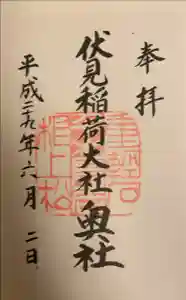 奉拝
伏見稲荷大社奥社
平成二十九年六月二日